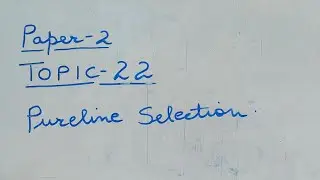 Paper-2
TOPIC-22
Pureline Selection.